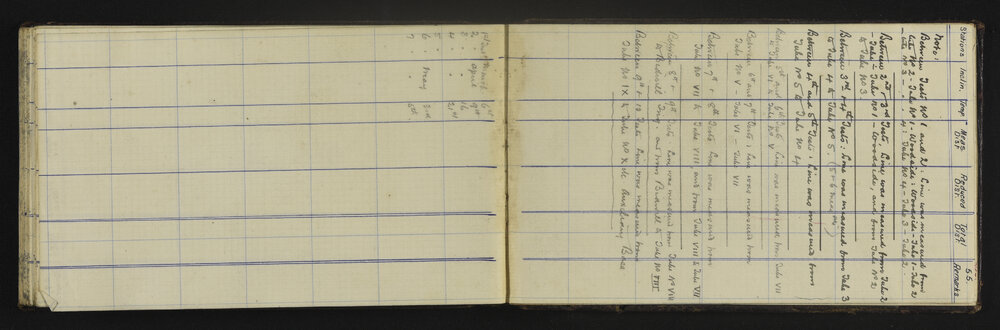 55.
Stations Inclin. Temp Meas Dist Reduced Dist Total Dist Remarks
Note:
Between Tests No 1 and 2: Line was measured from
Tube No 2 - Tube No 1 - Woodside: Woodside - Tube 1 - Tube 2
Tube No 3 - Tube No 4 - Tube 3 - Tube 2.
Between 2nd & 3rd Tests. Line was measured from Tube 2
- Tube 1 - Tube No 1 - Woodside, and from Tube No 2
to Tube No 3.
Between 3rd & 4th Tests: Line was measured from Tube 3
to Tube 4 & Tube No 5
Between 4th and 5th Tests: Line was measured from
Tube No 5 to Tube No 4
Between 5th and 6th Tests Line was measured from Tube VII
to Tube VI & Tube No V
Between 6th and 7th Tests: Line was measured from
Tube No V - Tube VI - Tube VII
Between 7th & 8th Tests Line was measured from
Tube No VII to Tube VIII and from Tube VIII to Tube VII
Between 8th & 9th Tests Line was measured from Tube No VIII
to and from to Tube No VIII
Between 9th & 10 Tests Line was measured from
Tube No IX to Tube No X Auxiliary Base
1st Test March 6th
2. " April 9th
3 " 16
4. " 21st
5 "
6 " May 3rd
7 . " 6th